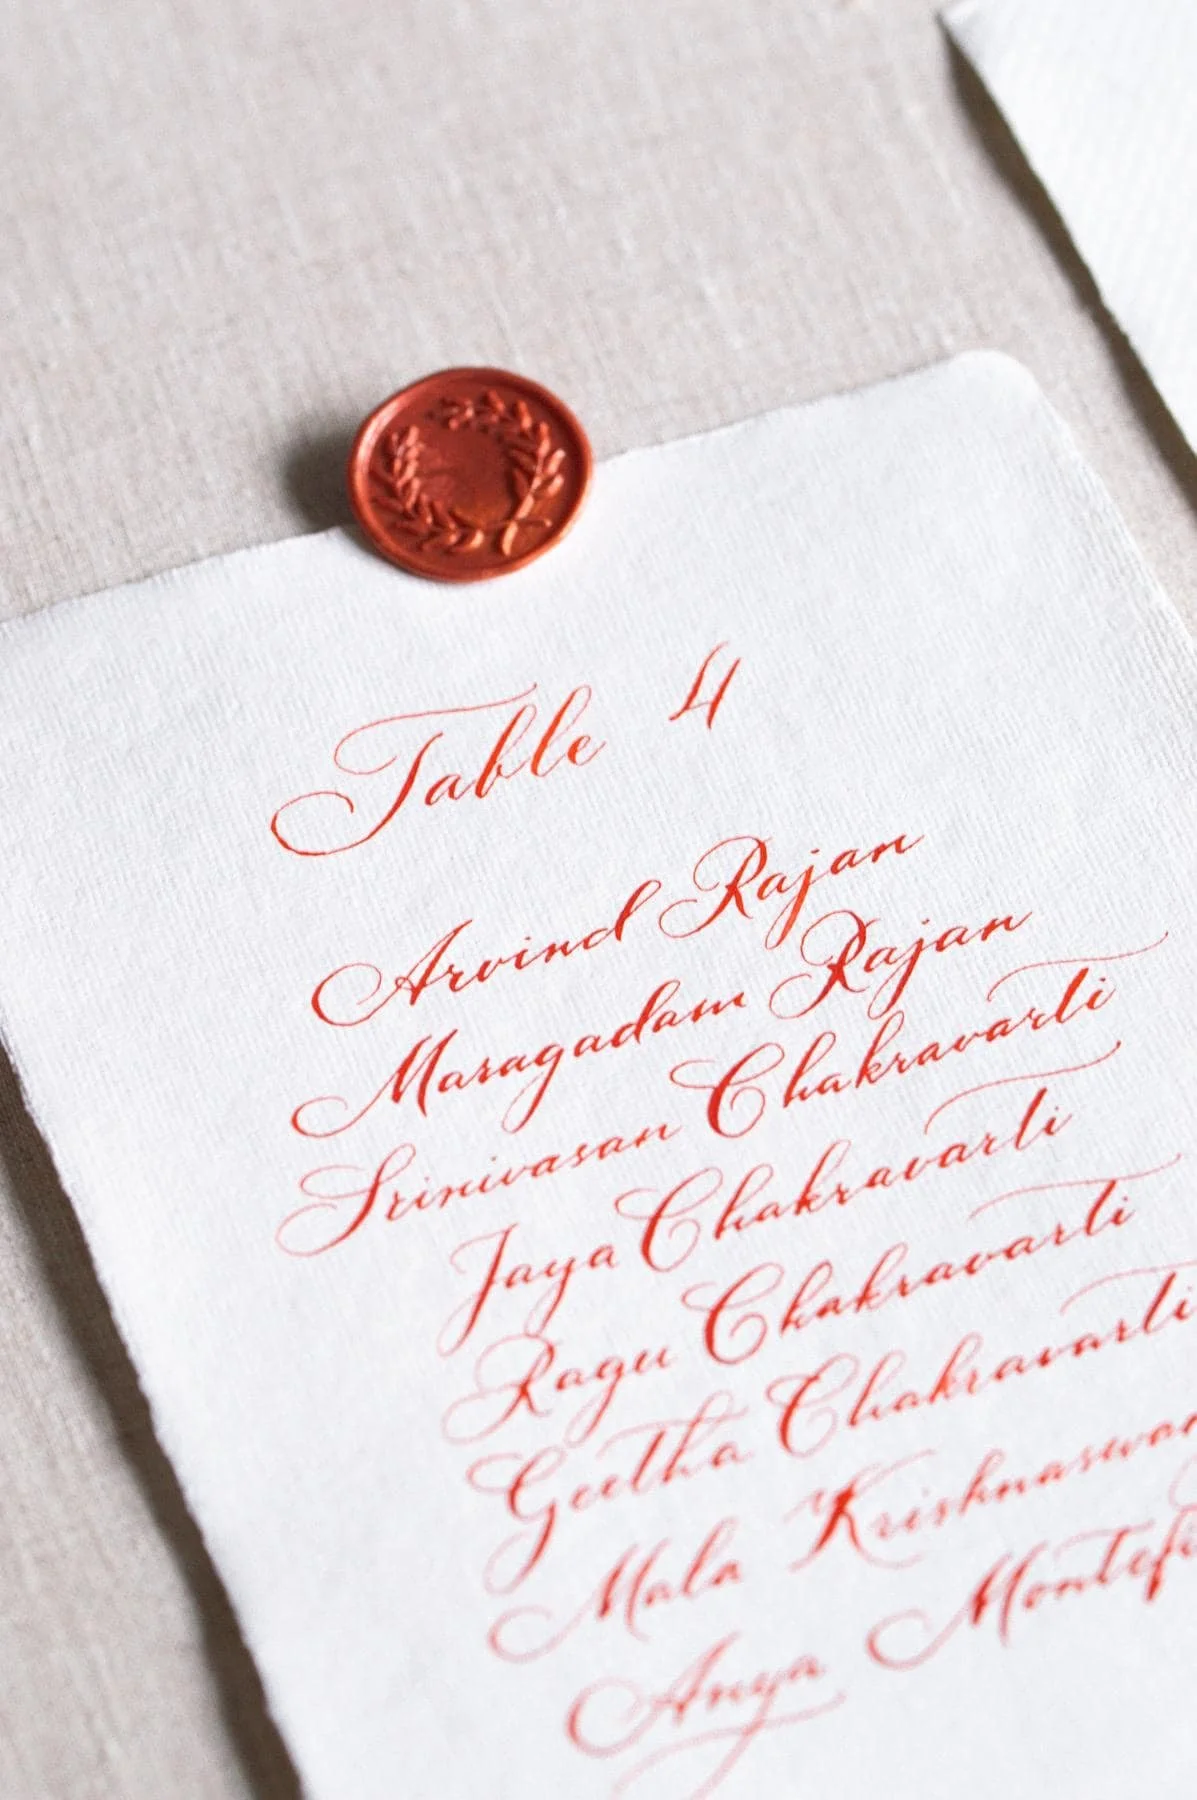 Table 4
Arvind Rajan
Maragadam Rajan
Srinivasan Chakravarti
Jaya Chakravarti
Ragu Chakravarti
Geetha Chakravarti
Mala
Anya